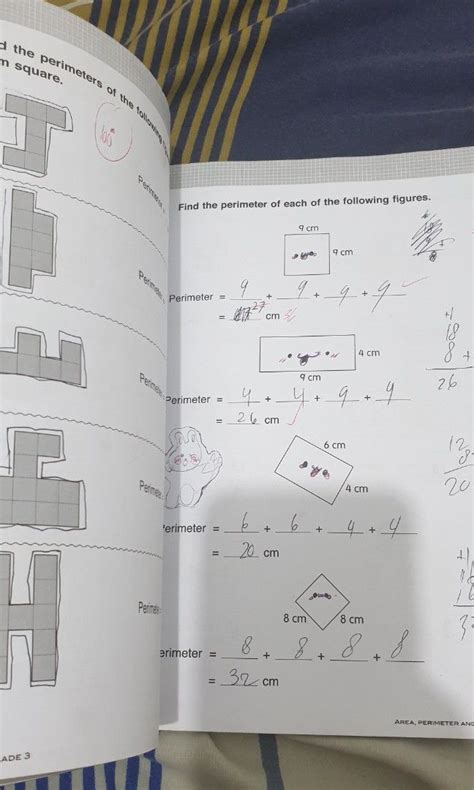 d the perimeters of the following
m square.
100
Perimeter
Perimeter
Perimeter
Perimeter
Perimete
ADE 3
Find the perimeter of each of the following figures.
9 cm
9 cm
Perimeter = 9 + 9 + 9 + 9
= 27 cm
4 cm
9 cm
Perimeter = 4 + 4 + 9 + 9
= 26 cm
+1
18
8 +
26
6 cm
4 cm
Perimeter = 6 + 6 + 4 + 4
= 20 cm
12
8
20
8 cm
8 cm
erimeter = 8 + 8 + 8 + 8
= 32 cm
+1
16
16
32
AREA, PERIMETER AND